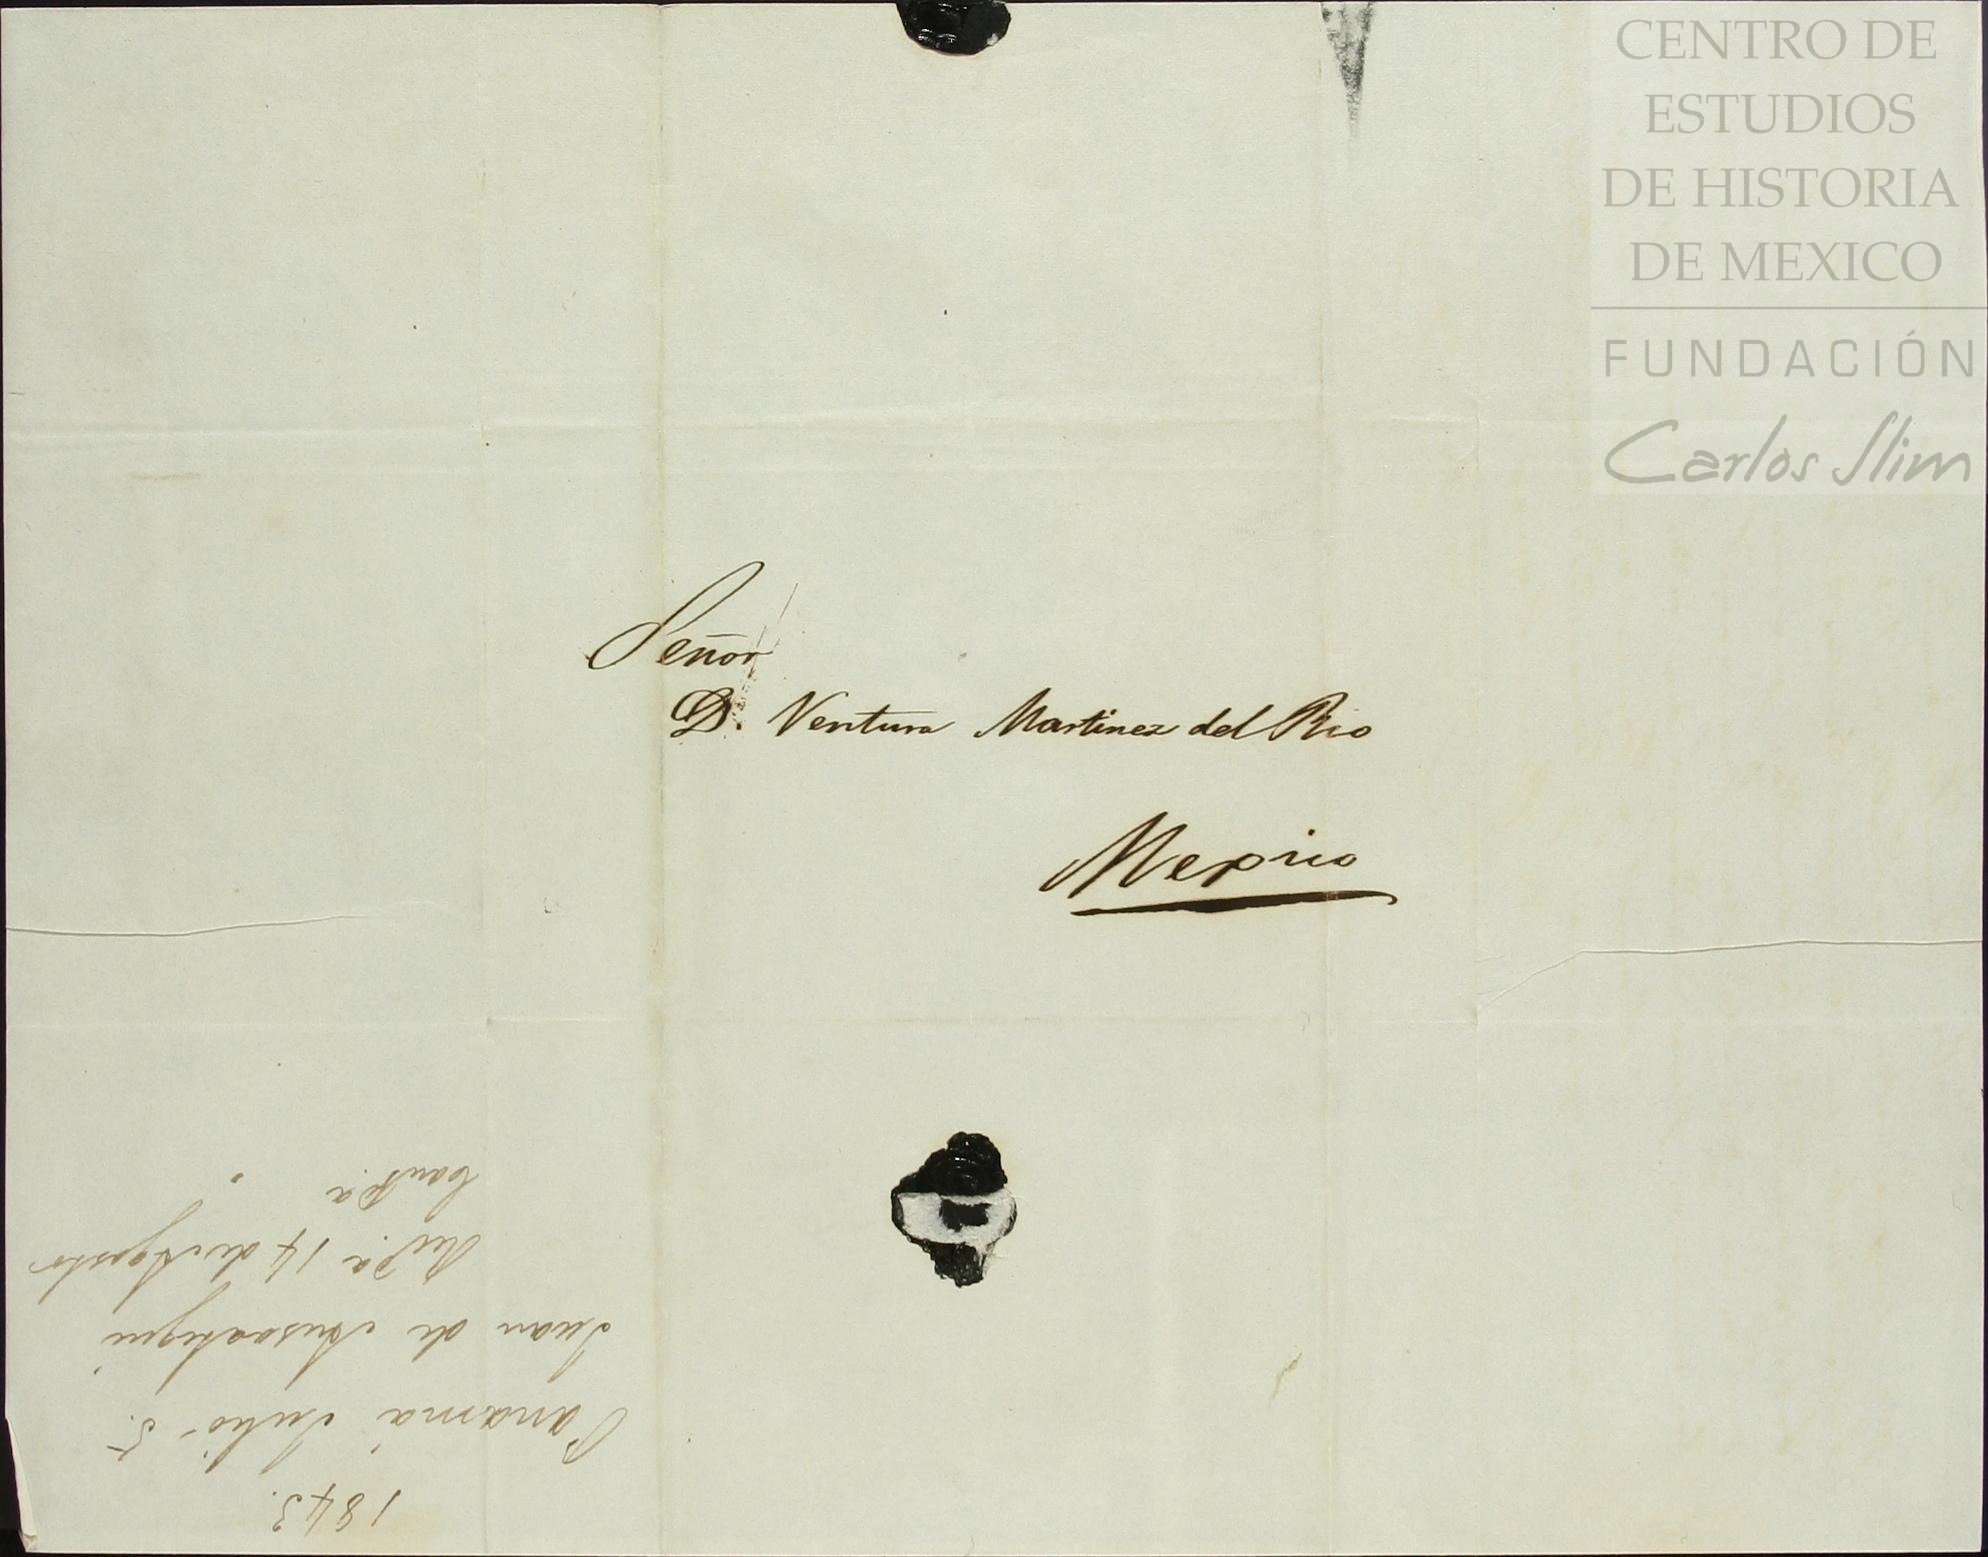 CENTRO DE
ESTUDIOS
DE HISTORIA
DE MEXICO
FUNDACIÓN
Carlos Slim
Señor
D. Ventura Martinez del Rio
Mexico
1843.
Panamá Julio 5.
Juan de Ansoategui
14 de Agosto